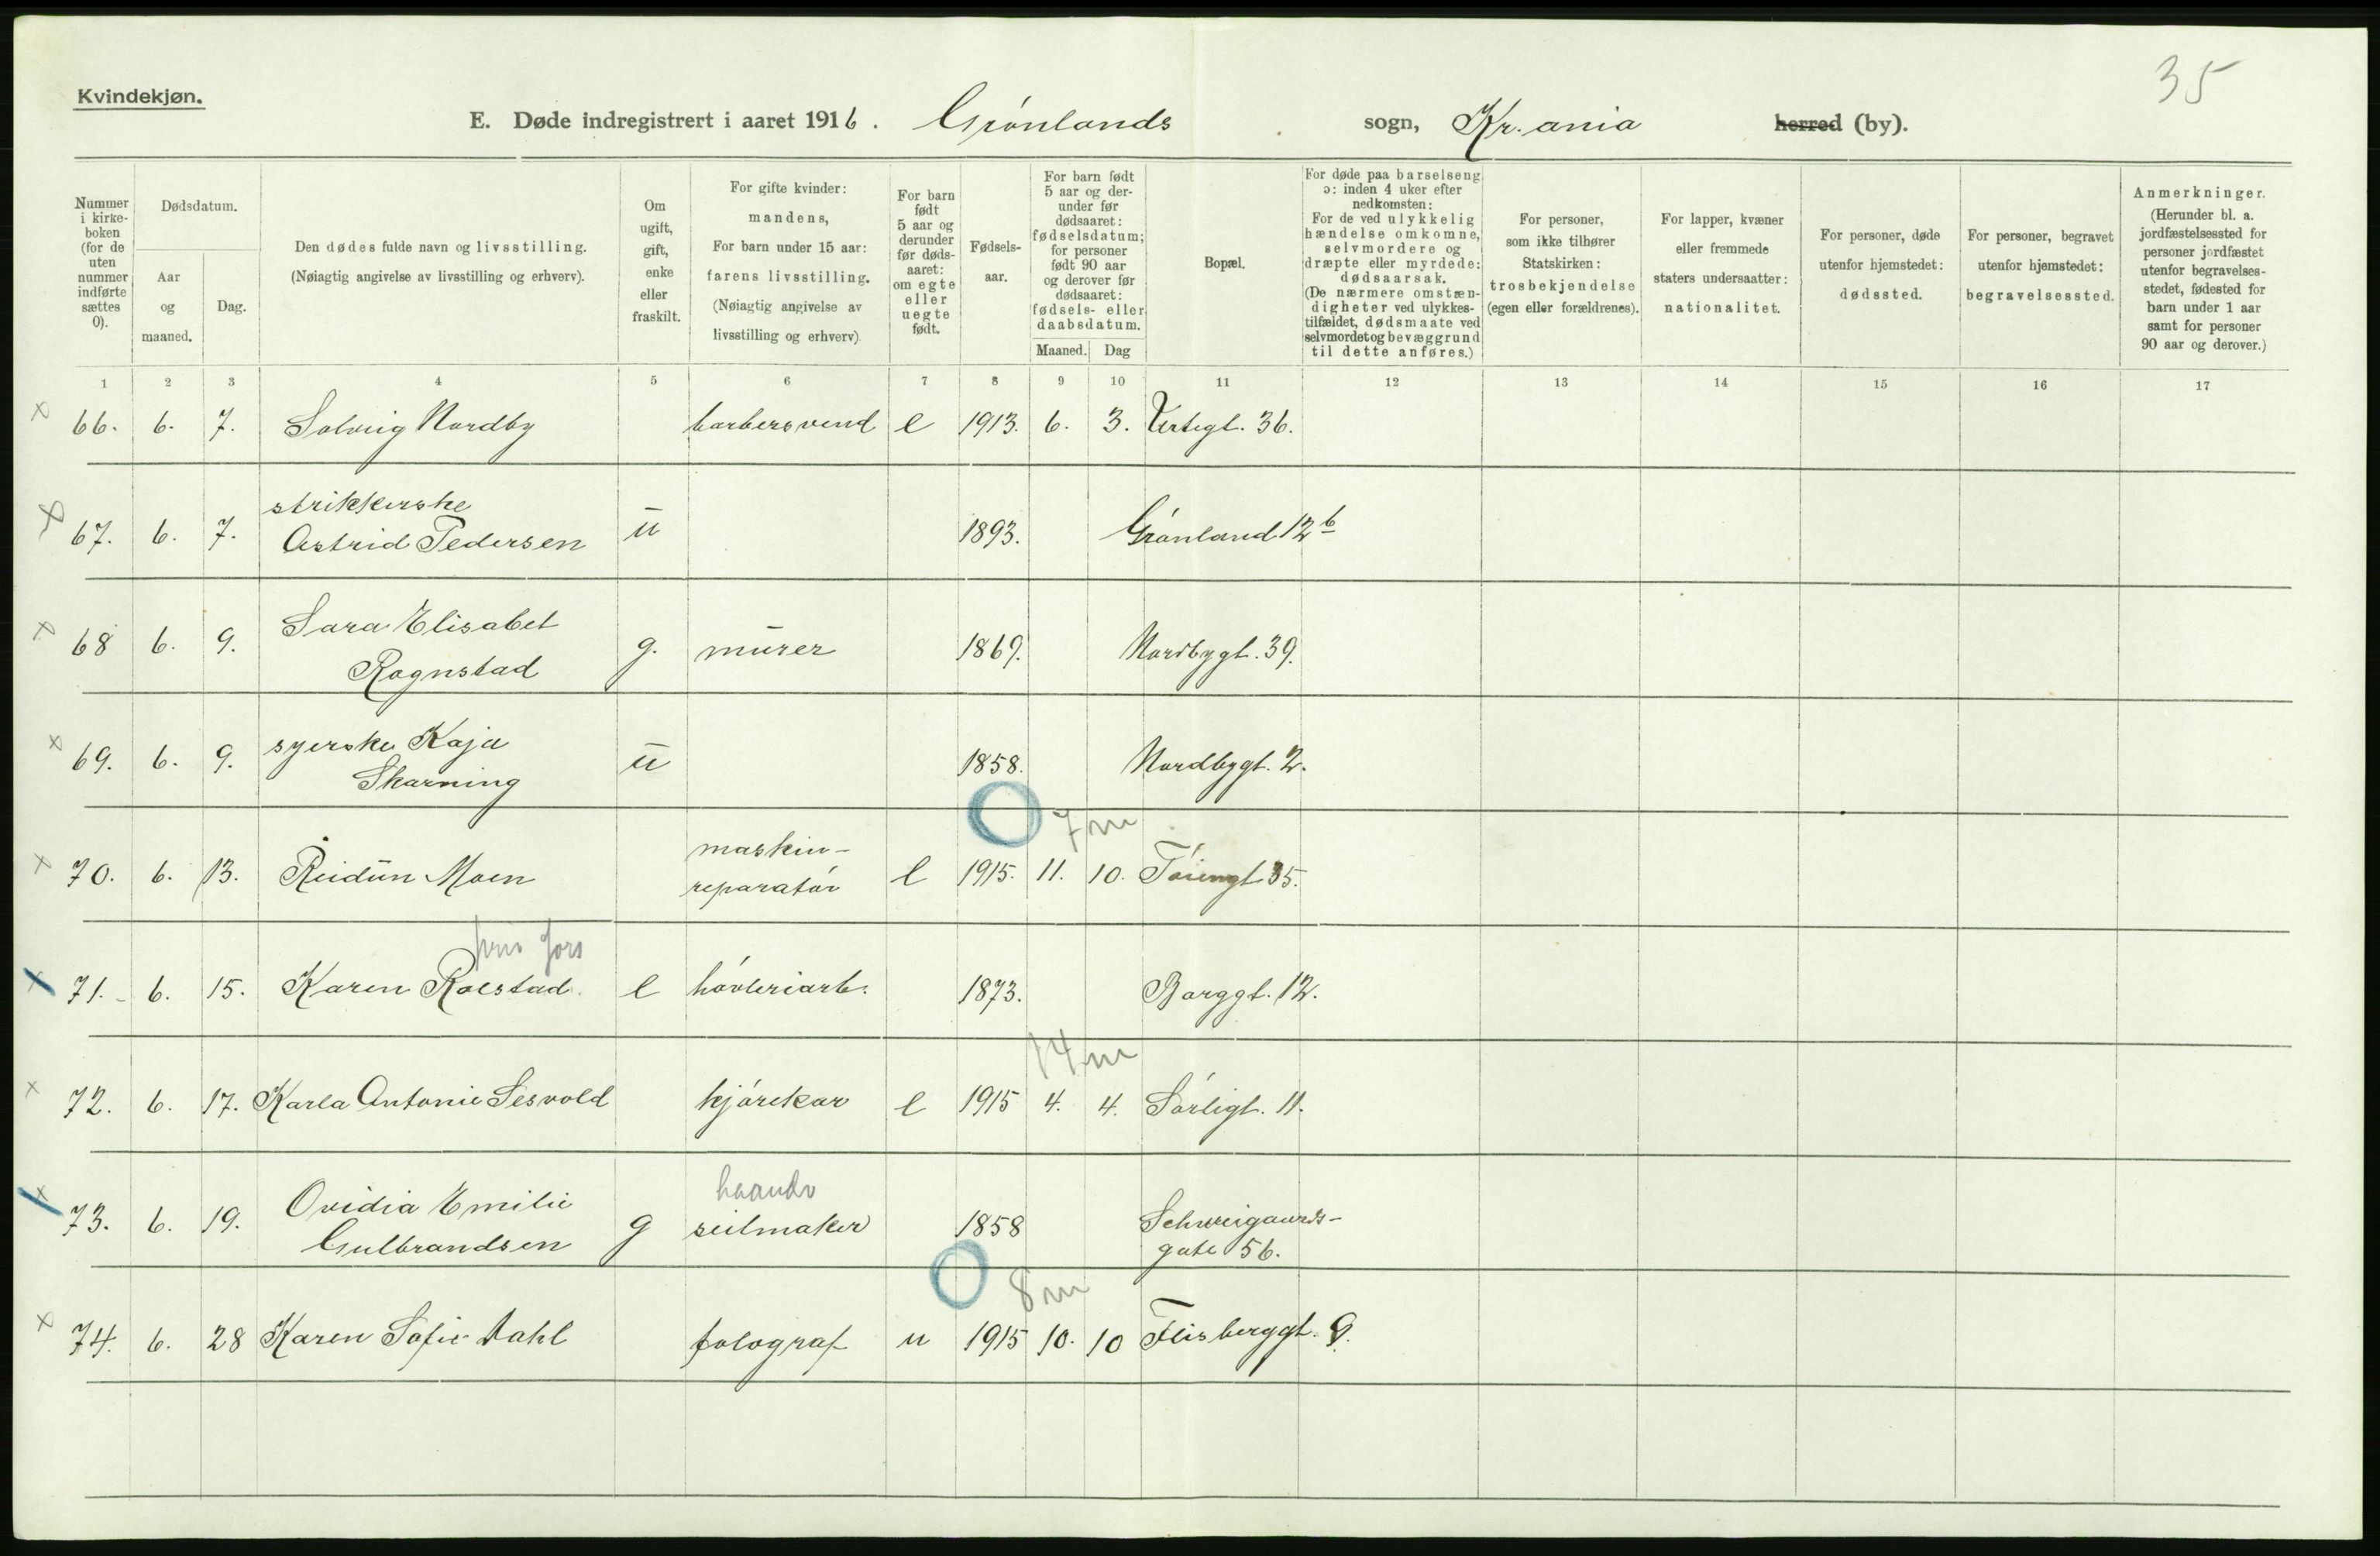 35
Kvindekjøn.
E. Døde indregistrert i aaret 1916. Grønlands sogn, Kr.ania herred (by).
Nummer i kirkeboken (for de uten nummer indførte sættes 0).
Dødsdatum.
Aar og maaned.
Dag.
Den dødes fulde navn og livsstilling.
(Nøiagtig angivelse av livsstilling og erhverv).
Om ugift, gift, enke eller fraskilt.
For gifte kvinder: mandens,
For barn under 15 aar: farens livsstilling.
(Nøiagtig angivelse av livsstilling og erhverv)
For barn født 5 aar og derunder før dødsaaret: om egte eller uegte født.
Fødselsaar.
For barn født 5 aar og derunder før dødsaaret: fødselsdatum; for personer født 90 aar og derover før dødsaaret: fødsels- eller daabsdatum.
Maaned. Dag
Bopæl.
For døde paa barselseng ɔ: inden 4 uker efter nedkomsten: For de ved ulykkelig hændelse omkomne, selvmordere og dræpte eller myrdede: dødsaarsak. (De nærmere omstændigheter ved ulykkestilfældet, dødsmaate ved selvmordet og bevæggrund til dette anføres.)
For personer, som ikke tilhører Statskirken: trosbekjendelse (egen eller forældrenes).
For lapper, kvæner eller fremmede staters undersaatter: nationalitet.
For personer, døde utenfor hjemstedet: dødssted.
For personer, begravet utenfor hjemstedet: begravelsessted.
Anmerkninger. (Herunder bl. a. jordfæstelsessted for personer jordfæstet utenfor begravelsesstedet, fødested for barn under 1 aar samt for personer 90 aar og derover.)
1 2 3 4 5 6 7 8 9 10 11 12 13 14 15 16 17
66. 6. 7. Solveig Nordby barbersvend e 1913. 6. 3. Urtegt. 36.
strikkerske
67. 6. 7. Astrid Pedersen u 1893. Grønland 12b
Sara Elisabet
68 6. 9. Rognstad g. murer 1869. Nordbygt. 39.
69. 6. 9. syerske Kaja u 1858. Nordbygt. 2.
Skarning
7 m
maskin-
70. 6. 13. Reidun Moen reparatør e 1915. 11. 10. Tøiengt 35.
priv fors
71. 6. 15. Karen Rolstad. e høvleriarb. 1873. Borggt. 12.
14 m
72. 6. 17. Karla Antonie Sesvold kjørekar e 1915 4. 4. Sørligt. 11.
haandv
73. 6. 19. Ovidia Emilie g seilmaker 1858 Schweigaards-
Gulbrandsen gate 56.
8 m
74. 6. 28 Karen Sofie Dahl fotograf u 1915 10. 10 Flisberggt. 9.